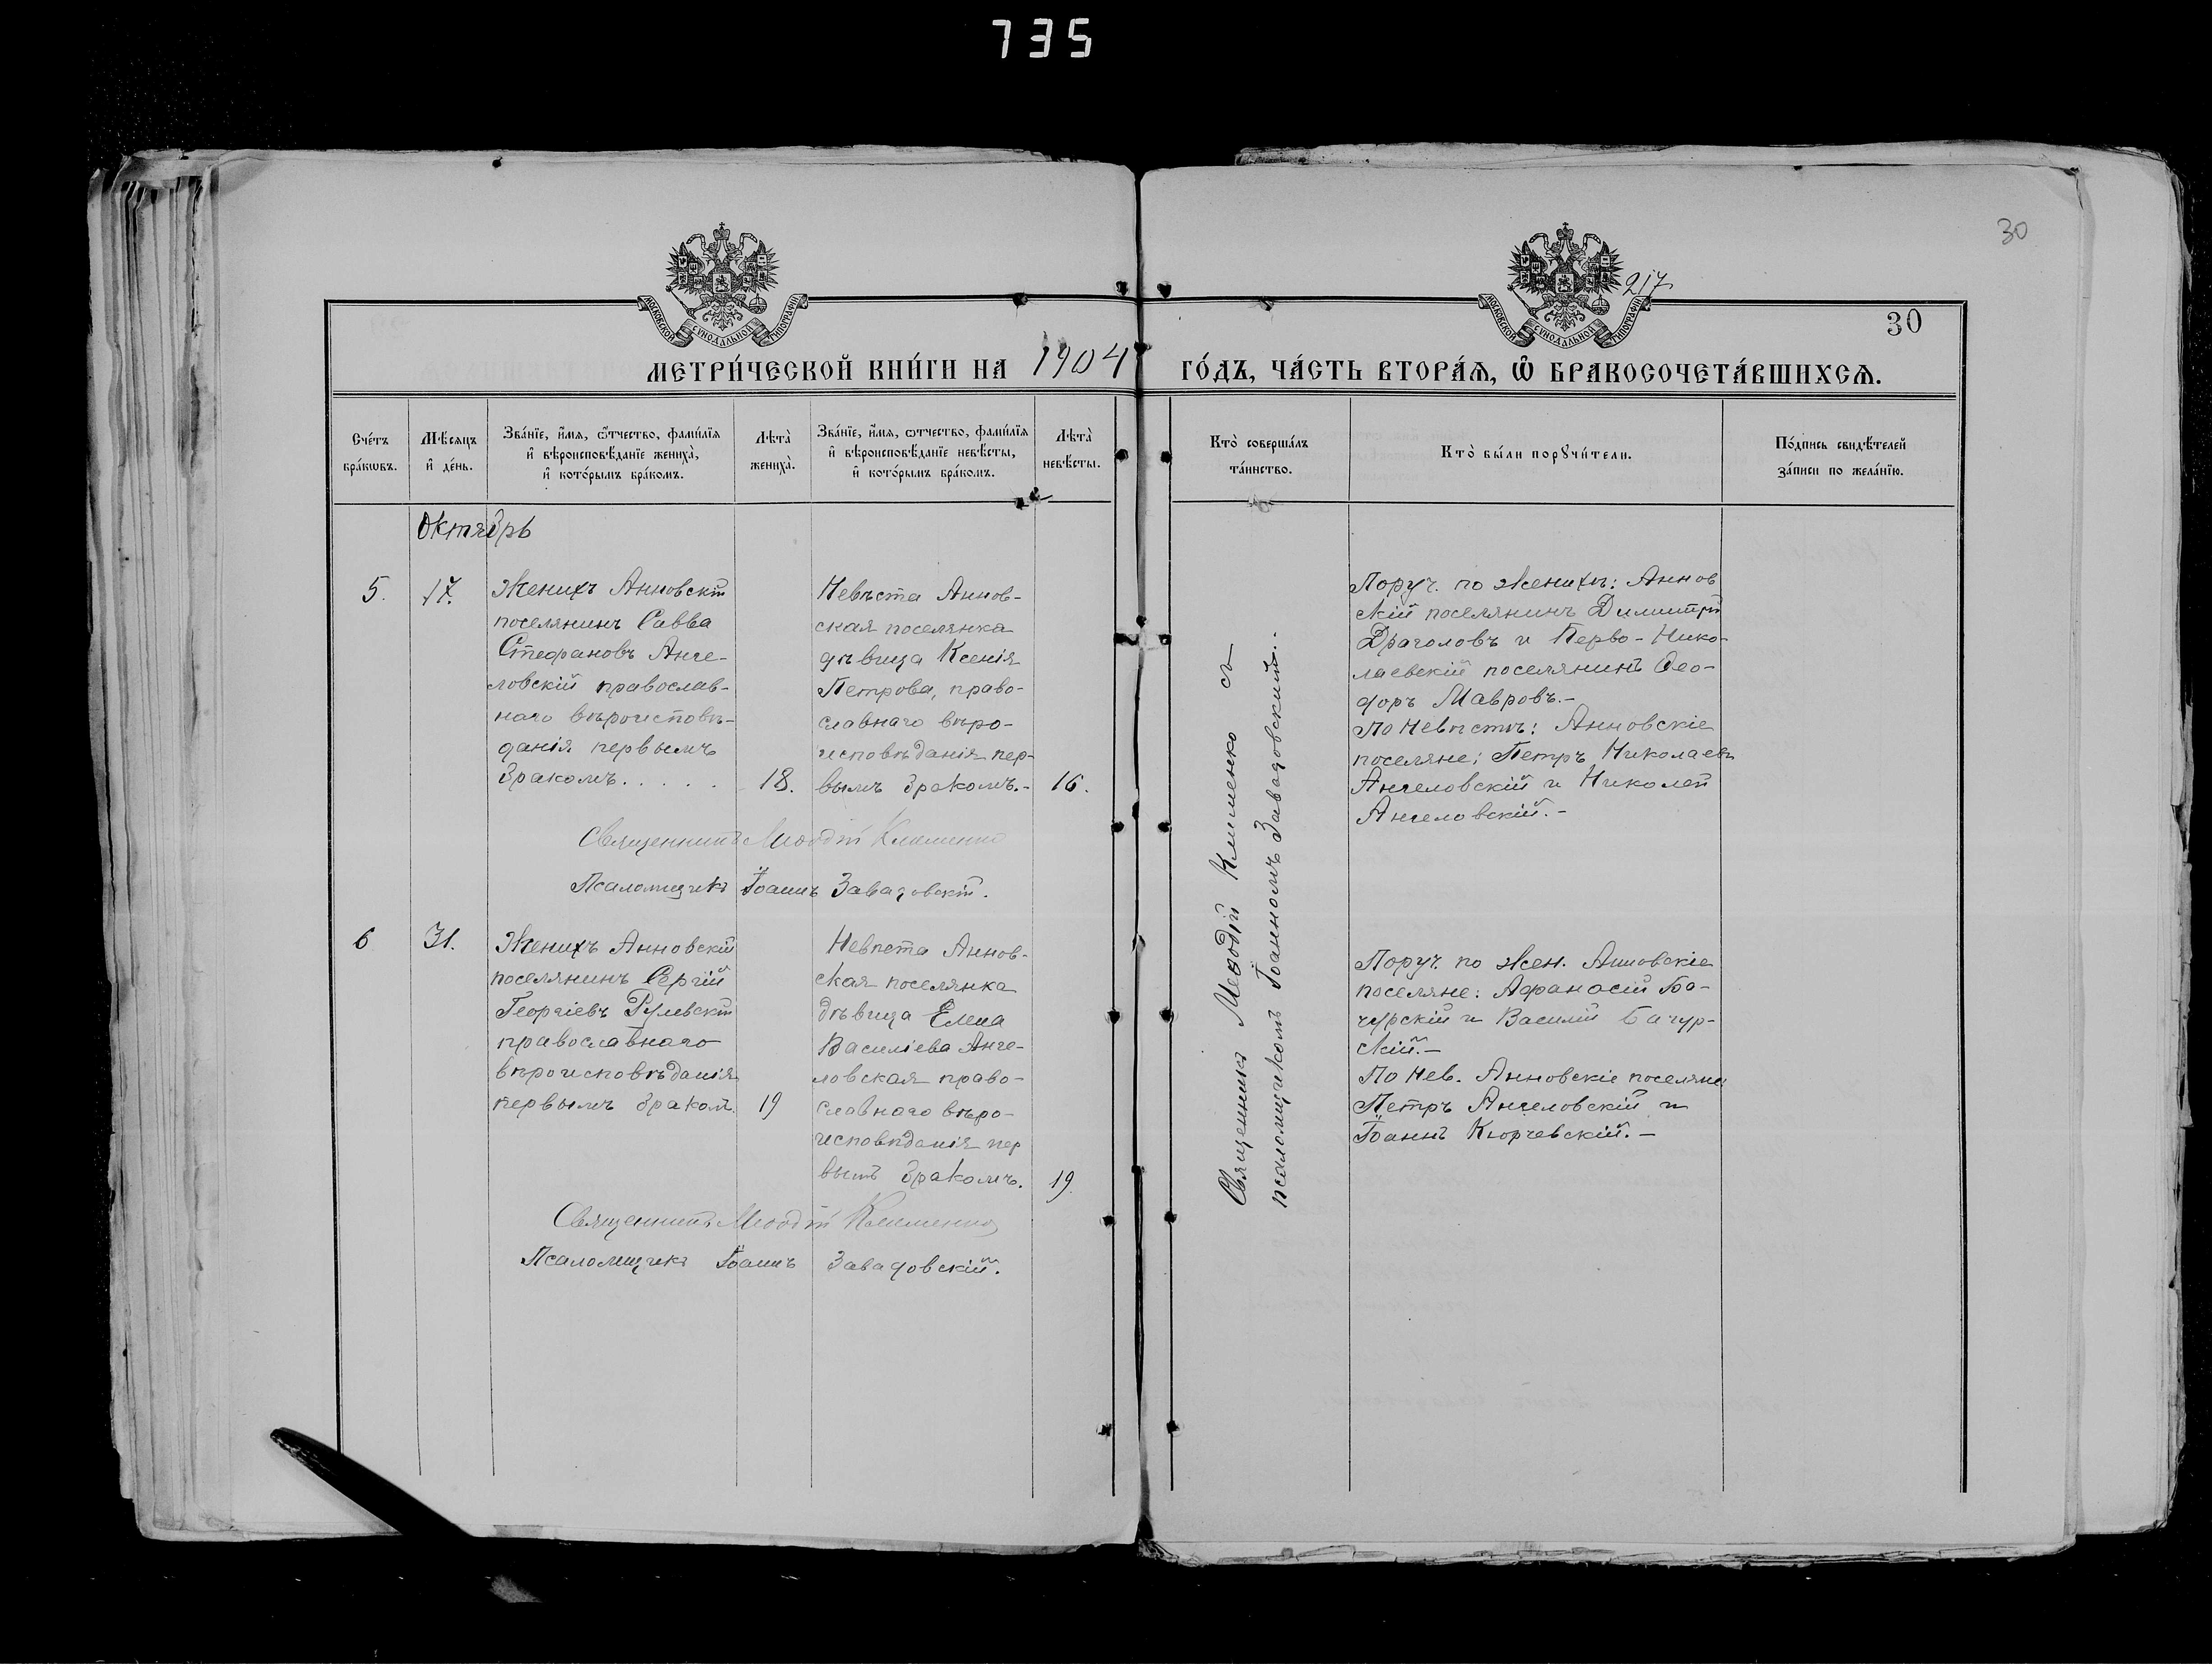 735
30
217
30
МОСКОВСКОЙ СѴНОДАЛЬНОЙ ТИПОГРАФІИ
МОСКОВСКОЙ СѴНОДАЛЬНОЙ ТИПОГРАФІИ
МЕТРИ́ЧЕСКОЙ КНИ́ГИ НА 1904 ГО́ДЪ, ЧА́СТЬ ВТОРА́Ѧ, Ѽ БРАКОСОЧЕТА́ВШИХСѦ.
Сче́тъ
бра́кѡвъ.
Мѣ́сѧцъ
и҆ де́нь.
Зва́нїе, и҆́мѧ, ѻ҆́тчество, фами́лїѧ
и҆ вѣроисповѣ́данїе жениха̀,
и҆ кото́рымъ бра́комъ.
Лѣта̀
жениха̀.
Зва́нїе, и҆́мѧ, ѻ҆́тчество, фами́лїѧ
и҆ вѣроисповѣ́данїе невѣ́сты,
и҆ кото́рымъ бра́комъ.
Лѣта̀
невѣ́сты.
Кто̀ соверша́лъ
та́инство.
Кто̀ бы́ли порꙋчи́тели.
По́дпись свидѣ́телей
за́писи по жела́нїю.
Октябрь
5.
17.
Женихъ Анновскій
поселянинъ Савва
Стефановъ Анге-
ловскій православ-
наго вѣроисповѣ-
данія первымъ
бракомъ. . . . .
18.
Невѣста Аннов-
ская поселянка
дѣвица Ксенія
Петрова, право-
славнаго вѣро-
исповѣданія пер-
вымъ бракомъ.-
16.
Священникъ Меѳодій Клименко
Псаломщикъ Іоаннъ Завадовскій.
Поруч. по женихѣ: Аннов
скій поселянинъ Димитрій
Драголовъ и Перво-Нико-
лаевскій поселянинъ Ѳео-
доръ Мавровъ.-
По невѣстѣ: Анновскіе
поселяне: Петръ Николаевъ
Ангеловскій и Николай
Ангеловскій.-
Священникъ Меѳодій Клименко съ
псаломщикомъ Іоанномъ Завадовскимъ..
6
31.
Женихъ Анновскій
поселянинъ Сергій
Георгіевъ Рулевскій
православнаго
вѣроисповѣданія
первымъ браком.
19
Невѣста Аннов-
ская поселянка
дѣвица Елена
Василіева Анге-
ловская право-
славнаго вѣро-
исповѣданія пер
вымъ бракомъ.
19.
Священникъ Меѳодій Клименко
Псаломщикъ Іоаннъ Завадовскій.
Поруч. по жен. Анновскіе
поселяне: Афанасій Ба-
чурскій и Василій Бачур-
скій.-
По нев. Анновскіе поселяне
Петръ Ангеловскій и
Іоаннъ Кюрчевскій.-